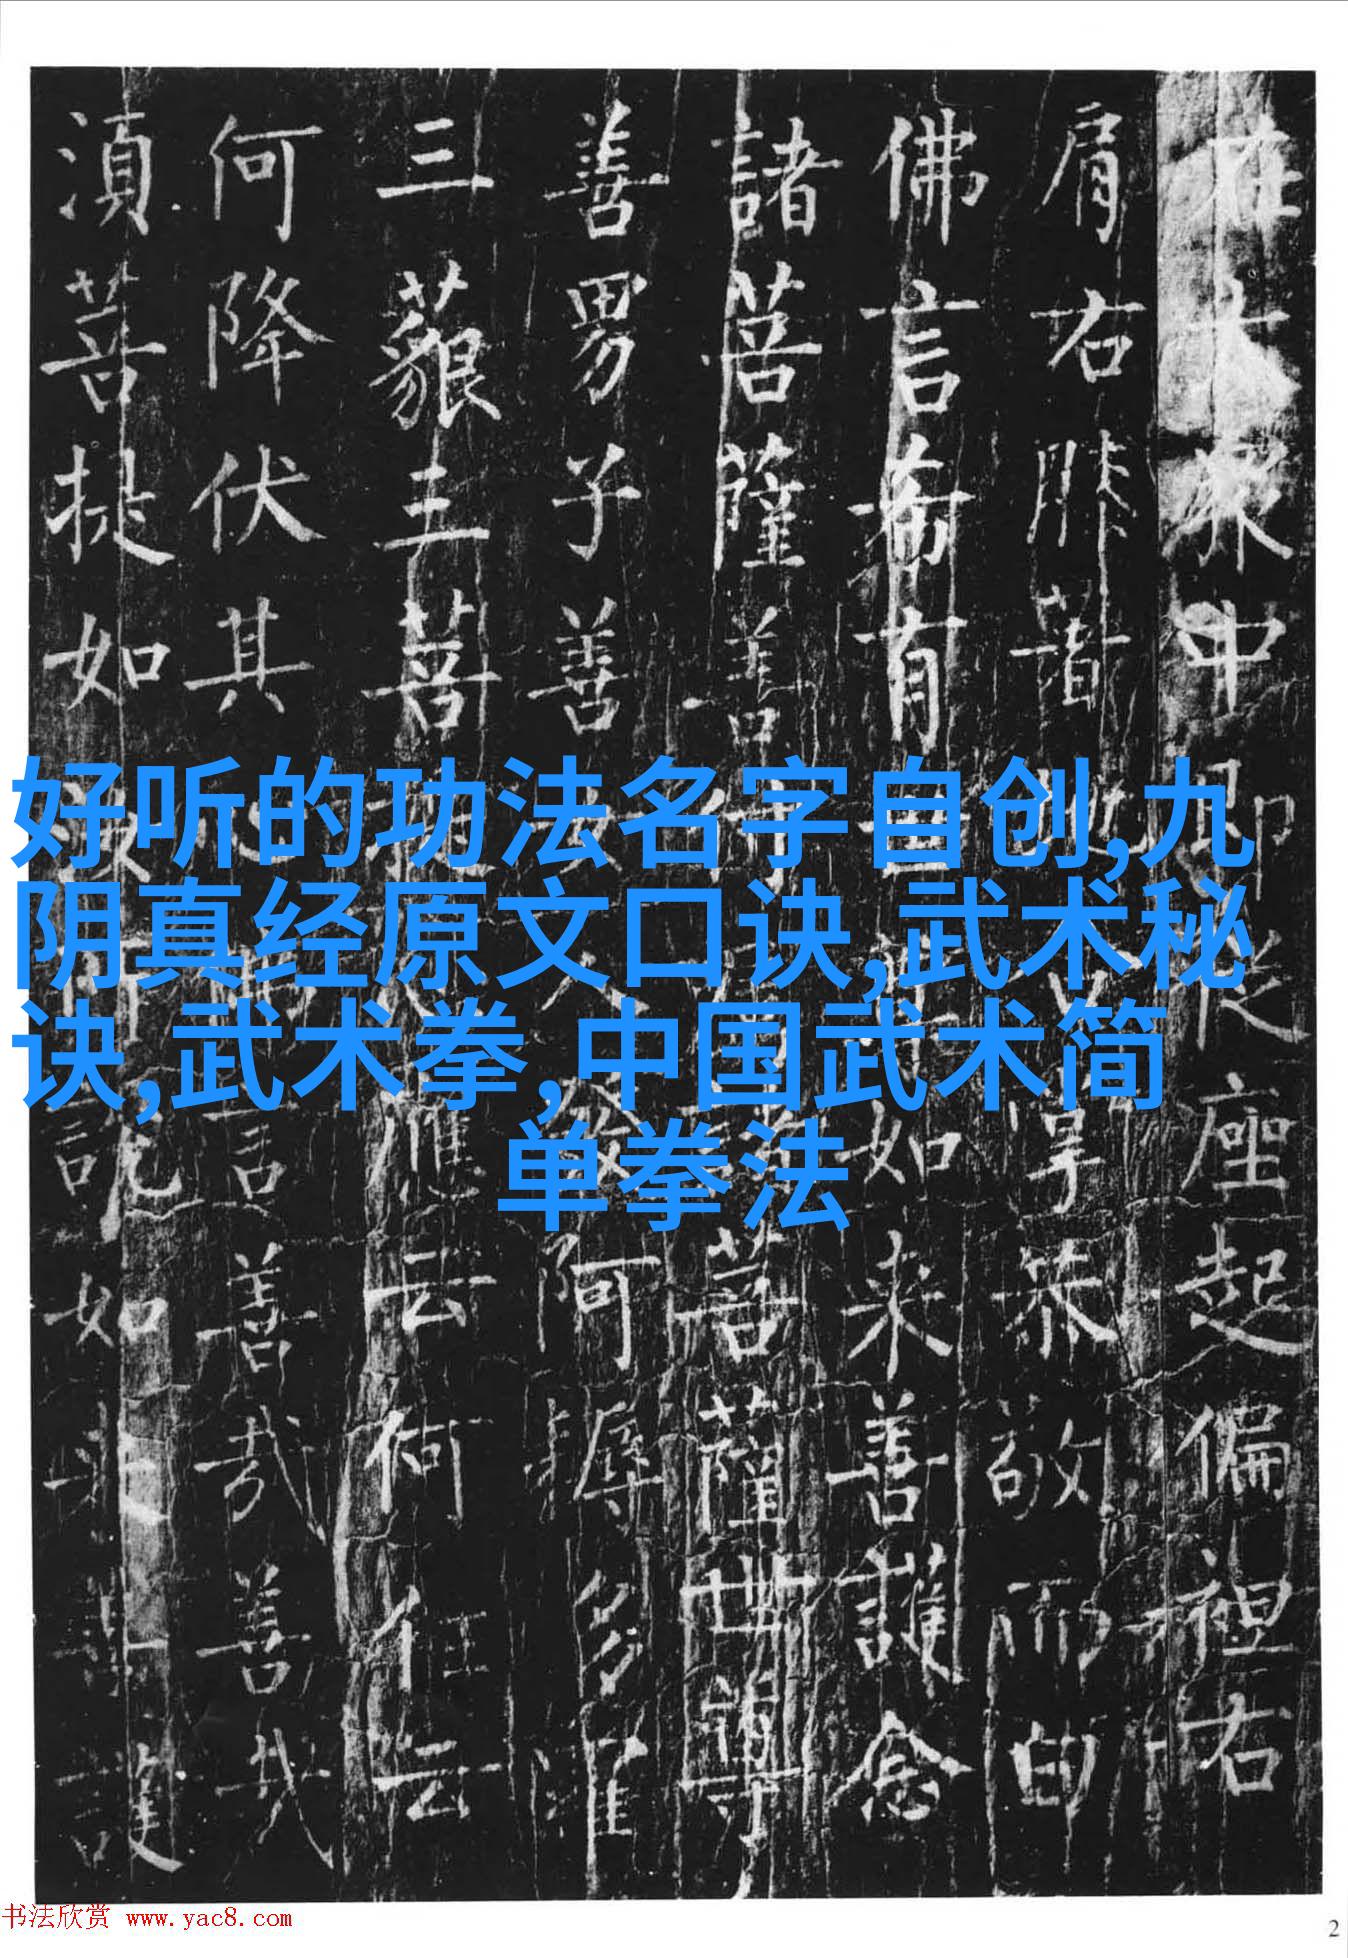 在大眾中即從座起偏袒右
肩右膝著掌恭敬而白
佛言希有如来善護念
諸菩薩善菩薩世尊
善男子善發阿耨多羅
三藐三菩應云何住云
何降伏其言善哉善哉
須菩提如說如来善護
好听的功法名字自创,九
阴真经原文口诀,武术秘
诀,武术拳,中国武术简
单拳法
书法欣赏 www.yac8.com
2